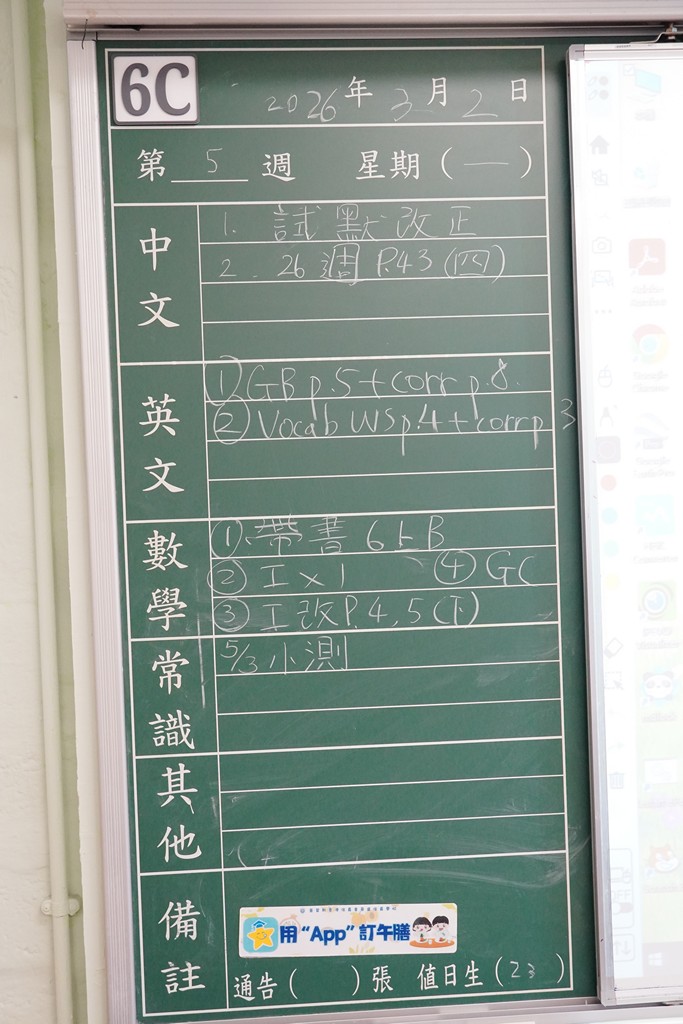 6C
2026年3月2日
第5週 星期(一)
中文
1. 試默改正
2. 26週 P.43 (四)
英文
① GB p.5 + corr p.8.
② Vocab WS p.4 + corr p 3
數學
①. 帶書 6上B
② 工x1 ④ GC
③ 工改P.4,5(下)
常識
5/3 小測
其他
備註
用“App”訂午膳
通告( )張 值日生(23)